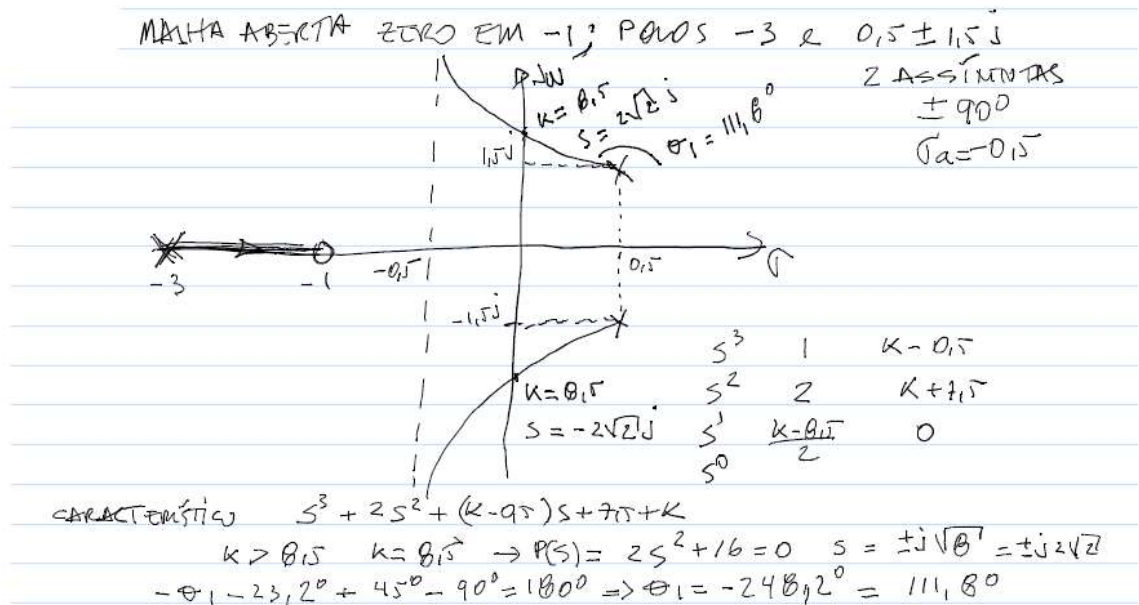 MALHA ABERTA ZERO EM -1; POLOS -3 e 0,5 ± 1,5 j
2 ASSÍNTOTAS
± 90°
σa = -0,5
jω
K = 8,5
s = 2√2 j
θ1 = 111,8°
1,5j
-3
-1
-0,5
0,5
σ
-1,5j
K = 8,5
s = -2√2 j
s³ 1 K - 0,5
s² 2 K + 7,5
s¹ K-8,5/2 0
s⁰
CARACTERÍSTICO s³ + 2s² + (K-0,5)s + 7,5 + K
K > 8,5 K = 8,5 → P(s) = 2s² + 16 = 0 s = ±j√8 = ±j2√2
-θ1 - 23,2° + 45° - 90° = 180° => θ1 = -248,2° = 111,8°